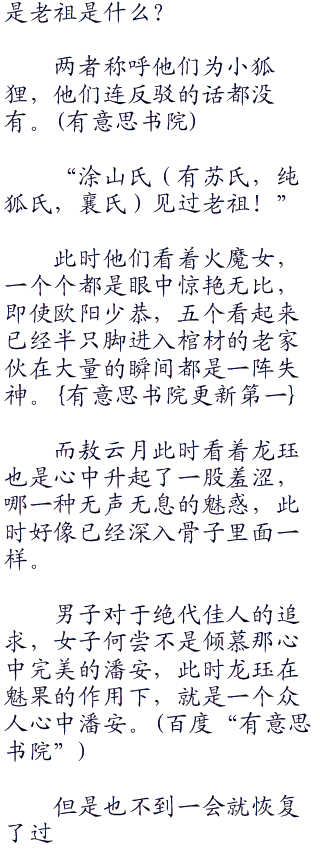 是老祖是什么？
两者称呼他们为小狐
狸，他们连反驳的话都没
有。(有意思书院)
“涂山氏（有苏氏，纯
狐氏，襄氏）见过老祖！”
此时他们看着火魔女，
一个个都是眼中惊艳无比，
即使欧阳少恭，五个看起来
已经半只脚进入棺材的老家
伙在大量的瞬间都是一阵失
神。{有意思书院更新第一}
而敖云月此时看着龙珏
也是心中升起了一股羞涩，
哪一种无声无息的魅惑，此
时好像已经深入骨子里面一
样。
男子对于绝代佳人的追
求，女子何尝不是倾慕那心
中完美的潘安，此时龙珏在
魅果的作用下，就是一个众
人心中潘安。(百度“有意思
书院”)
但是也不到一会就恢复
了过